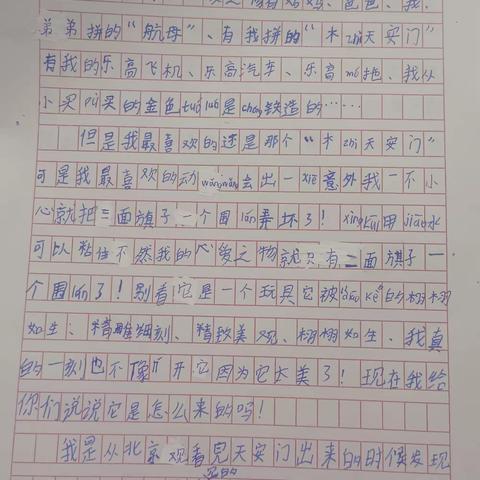 妈妈、爸爸、我、
弟弟拼的“航母”、有我拼的“木zhì天安门”
有我的乐高飞机、乐高汽车、乐高mó托、我从
小买的金色是chóng铁造的……
但是我最喜欢的还是那个“木zhì天安门”
可是我最喜欢的动wǎngwǎng会出一xiē意外我一不小
心就把三面旗子一个围lán弄坏了！xìngkuī用jiāo水
可以粘住不然我的心爱之物就只有二面旗子一
个围lán了！别看它是一个玩具它被diāo kè的栩栩
如生、精雕细刻、精致美观、栩栩如生、我真
的一刻也不像开它因为它太美了！现在我给
你们说说它是怎么来的吗！
我是从北京观看完天安门出来的时候发现